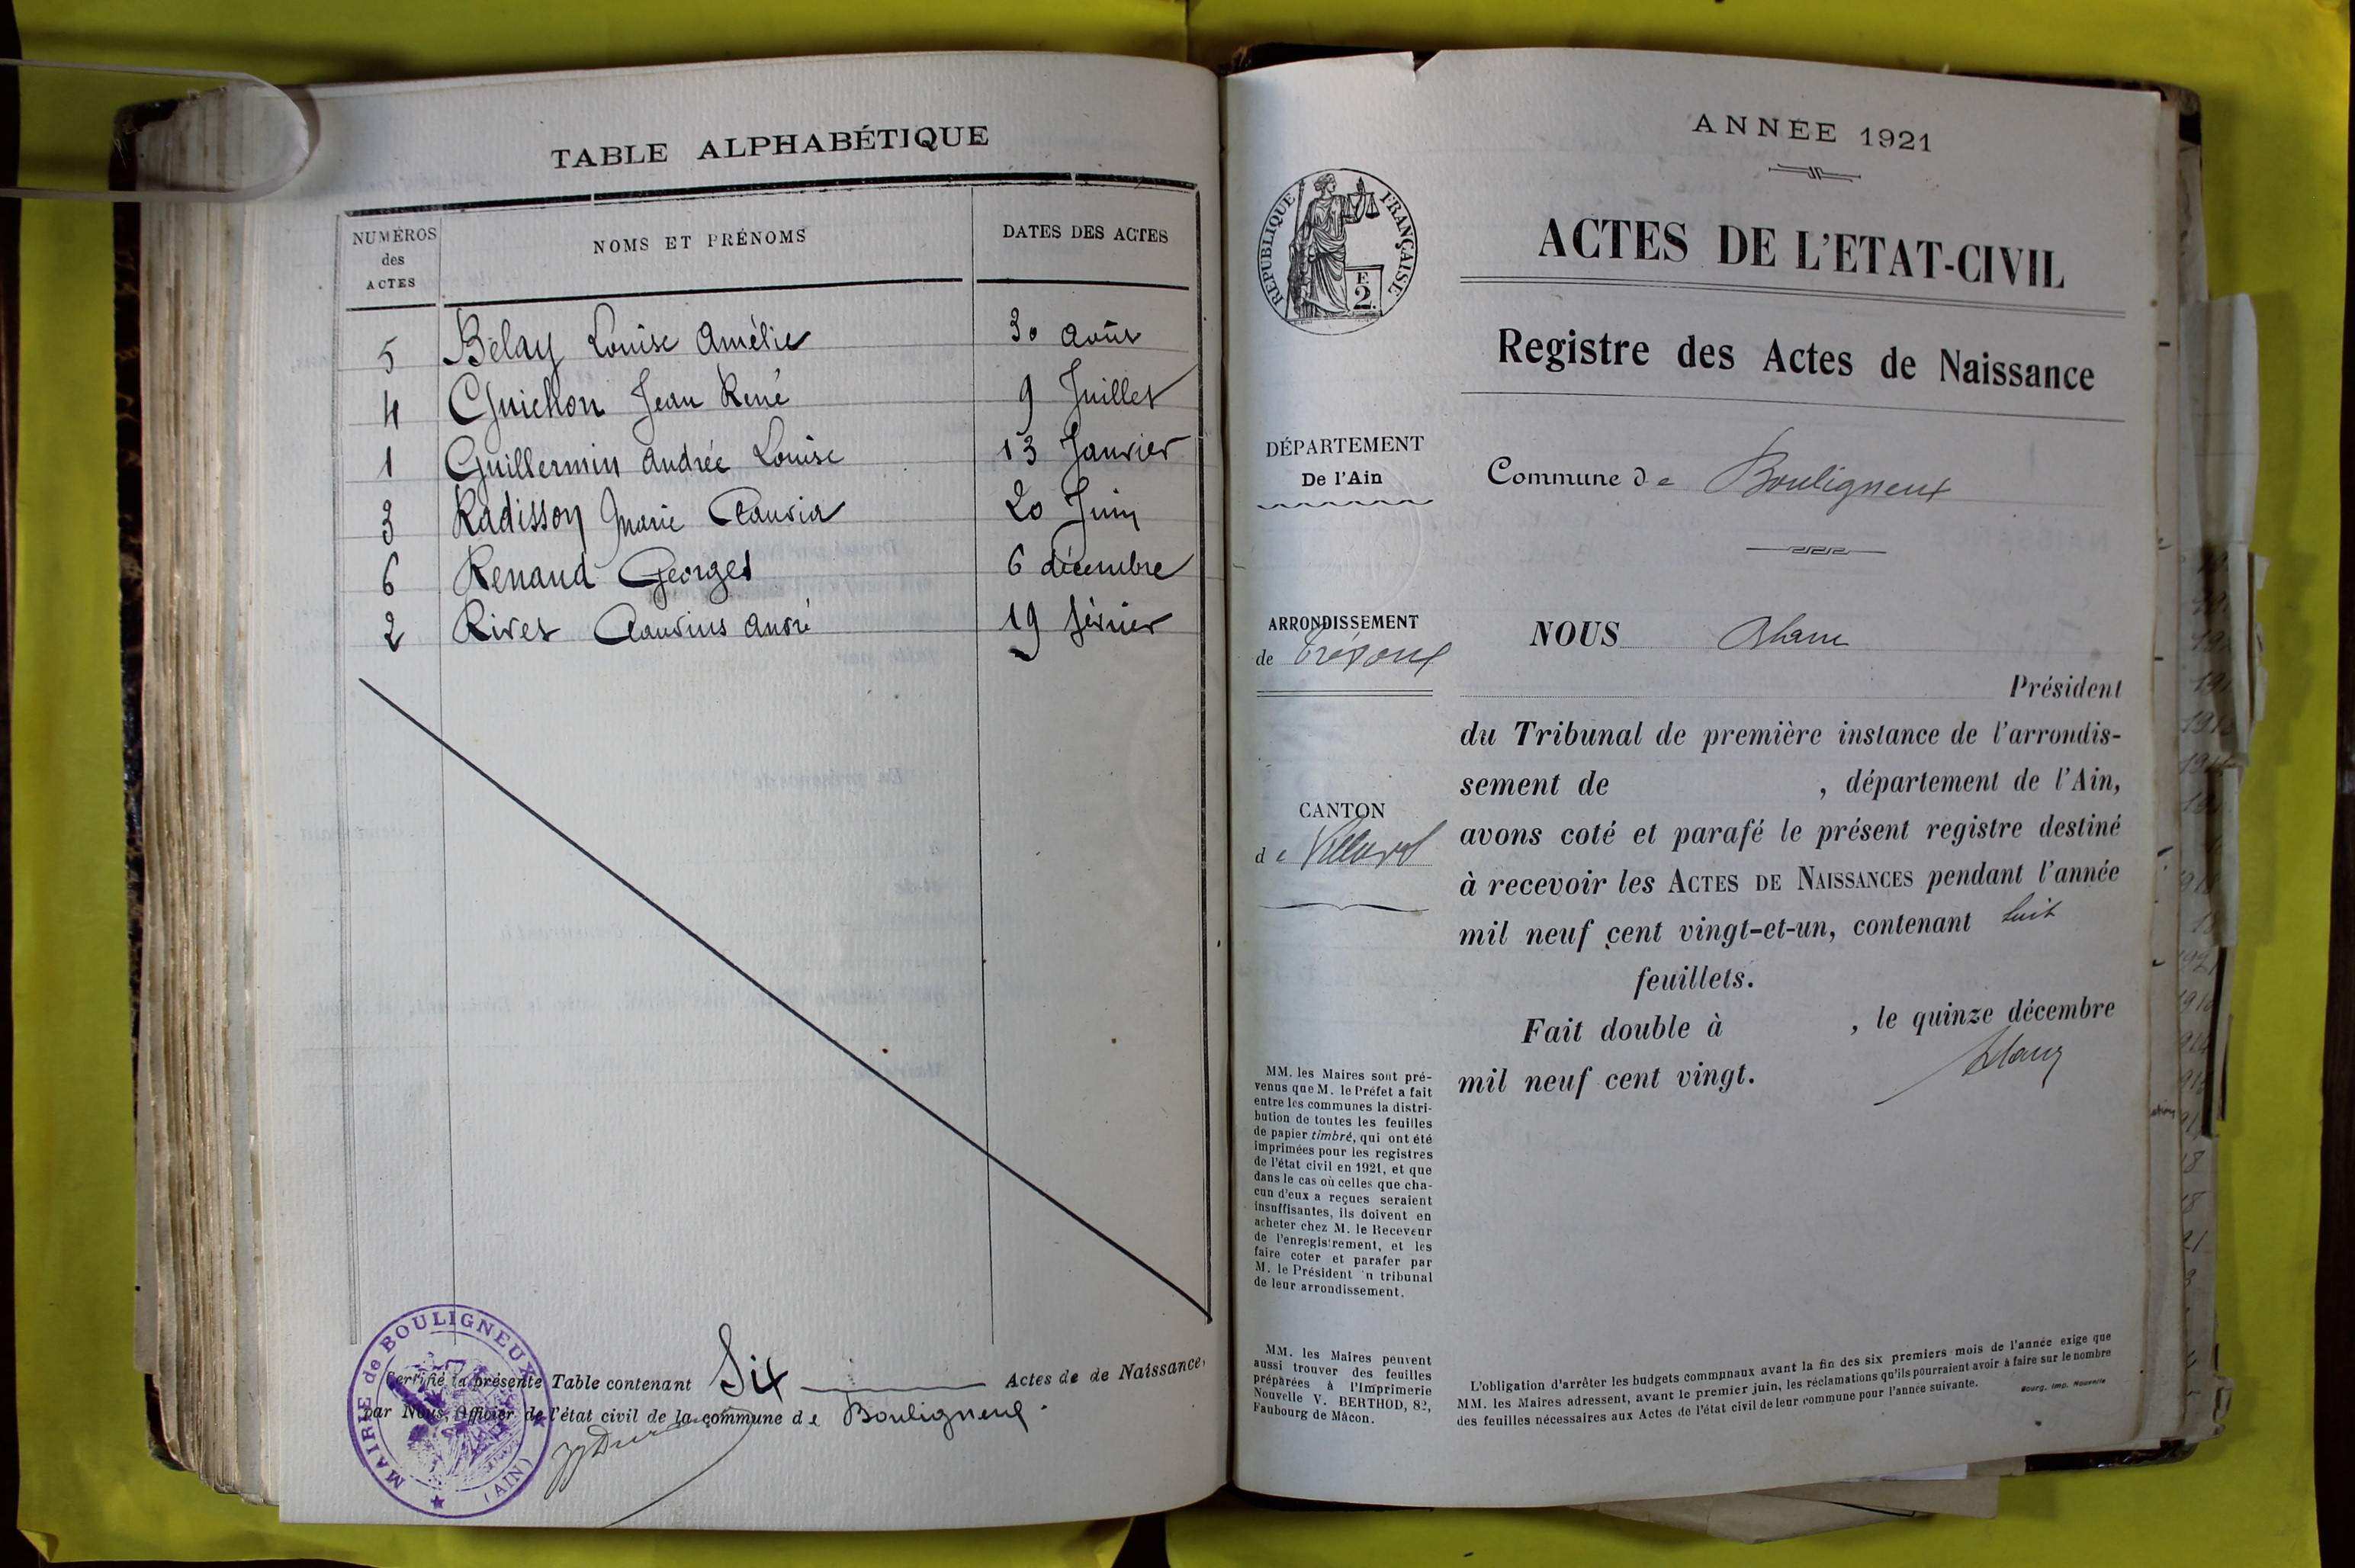 TABLE ALPHABÉTIQUE
NUMÉROS
des
ACTES
NOMS ET PRÉNOMS
DATES DES ACTES
5 Belay Louise Amélie 30 août
4 Guichon Jean René 9 Juillet
1 Guillermin Andrée Louise 13 Janvier
3 Radisson Marie Claudia 20 Juin
6 Renaud Georges 6 décembre
2 Rives Claudius André 19 février
Certifié la présente Table contenant Six Actes de de Naissance,
par Nous, Officier de l'état civil de la commune de Bouligneux.
MAIRIE de BOULIGNEUX
(AIN)
ANNÉE 1921
RÉPUBLIQUE FRANÇAISE
E
2.
ACTES DE L'ETAT-CIVIL
Registre des Actes de Naissance
DÉPARTEMENT
De l'Ain
Commune de Bouligneux
ARRONDISSEMENT
de Trévoux
CANTON
de Villars
NOUS
Président
du Tribunal de première instance de l'arrondis-
sement de , département de l'Ain,
avons coté et parafé le présent registre destiné
à recevoir les ACTES DE NAISSANCES pendant l'année
mil neuf cent vingt-et-un, contenant huit
feuillets.
Fait double à , le quinze décembre
mil neuf cent vingt.
MM. les Maires sont pré-
venus que M. le Préfet a fait
entre les communes la distri-
bution de toutes les feuilles
de papier timbré, qui ont été
imprimées pour les registres
de l'état civil en 1921, et que
dans le cas où celles que cha-
cun d'eux a reçues seraient
insuffisantes, ils doivent en
acheter chez M. le Receveur
de l'enregistrement, et les
faire coter et parafer par
M. le Président 'n tribunal
de leur arrondissement.
MM. les Maires peuvent
aussi trouver des feuilles
préparées à l'Imprimerie
Nouvelle V. BERTHOD, 82,
Faubourg de Mâcon.
L'obligation d'arrêter les budgets commpnaux avant la fin des six premiers mois de l'année exige que
MM. les Maires adressent, avant le premier juin, les réclamations qu'ils pourraient avoir à faire sur le nombre
des feuilles nécessaires aux Actes de l'état civil de leur commune pour l'année suivante.
Bourg. Imp. Nouvelle